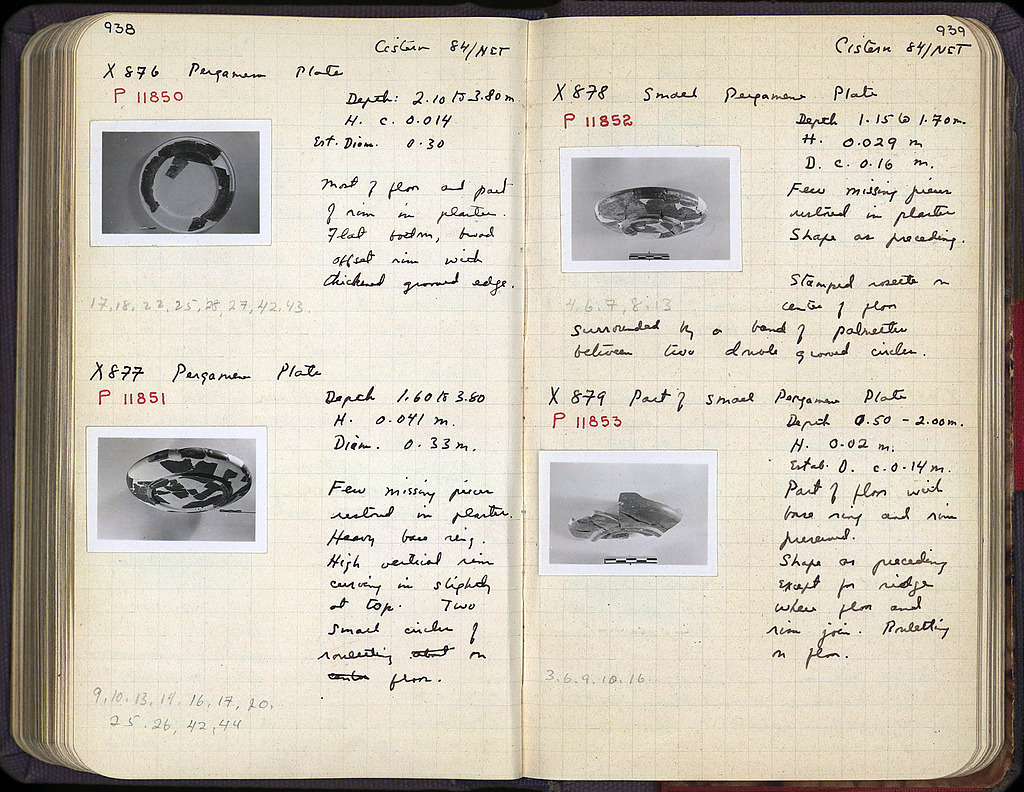 938
Cistern 84/NET
X 876 Pergamene Plate
P 11850
Depth: 2.10 to 3.80 m
H. c. 0.014
Est. Diam. 0.30
Most of floor and part
of rim in plaster.
Flat bottom, broad
offset rim with
thickened grooved edge.
17, 18, 22, 25, 28, 27, 42, 43.
X 877 Pergamene Plate
P 11851
Depth 1.60 to 3.80
H. 0.041 m.
Diam. 0.33 m.
Few missing pieces
restored in plaster.
Heavy base ring.
High vertical rim
curving in slightly
at top. Two
small circles of
rouletting about on
center floor.
9, 10, 13, 14, 16, 17, 20,
25. 26, 42, 44
939
Cistern 84/NET
X 878 Small Pergamene Plate
P 11852
Depth 1.15 to 1.70 m.
H. 0.029 m
D. c. 0.16 m.
Few missing pieces
restored in plaster
Shape as preceding.
Stamped rosette in
center of floor
4, 6, 7, 8, 13
surrounded by a band of palmettes
between two double grooved circles.
X 879 Part of small Pergamene Plate
P 11853
Depth 0.50 - 2.00 m.
H. 0.02 m.
Estab. D. c. 0.14 m.
Part of floor with
base ring and rim
preserved.
Shape as preceding
except for ridge
where floor and
rim join. Rouletting
on floor.
3, 6, 9, 10, 16